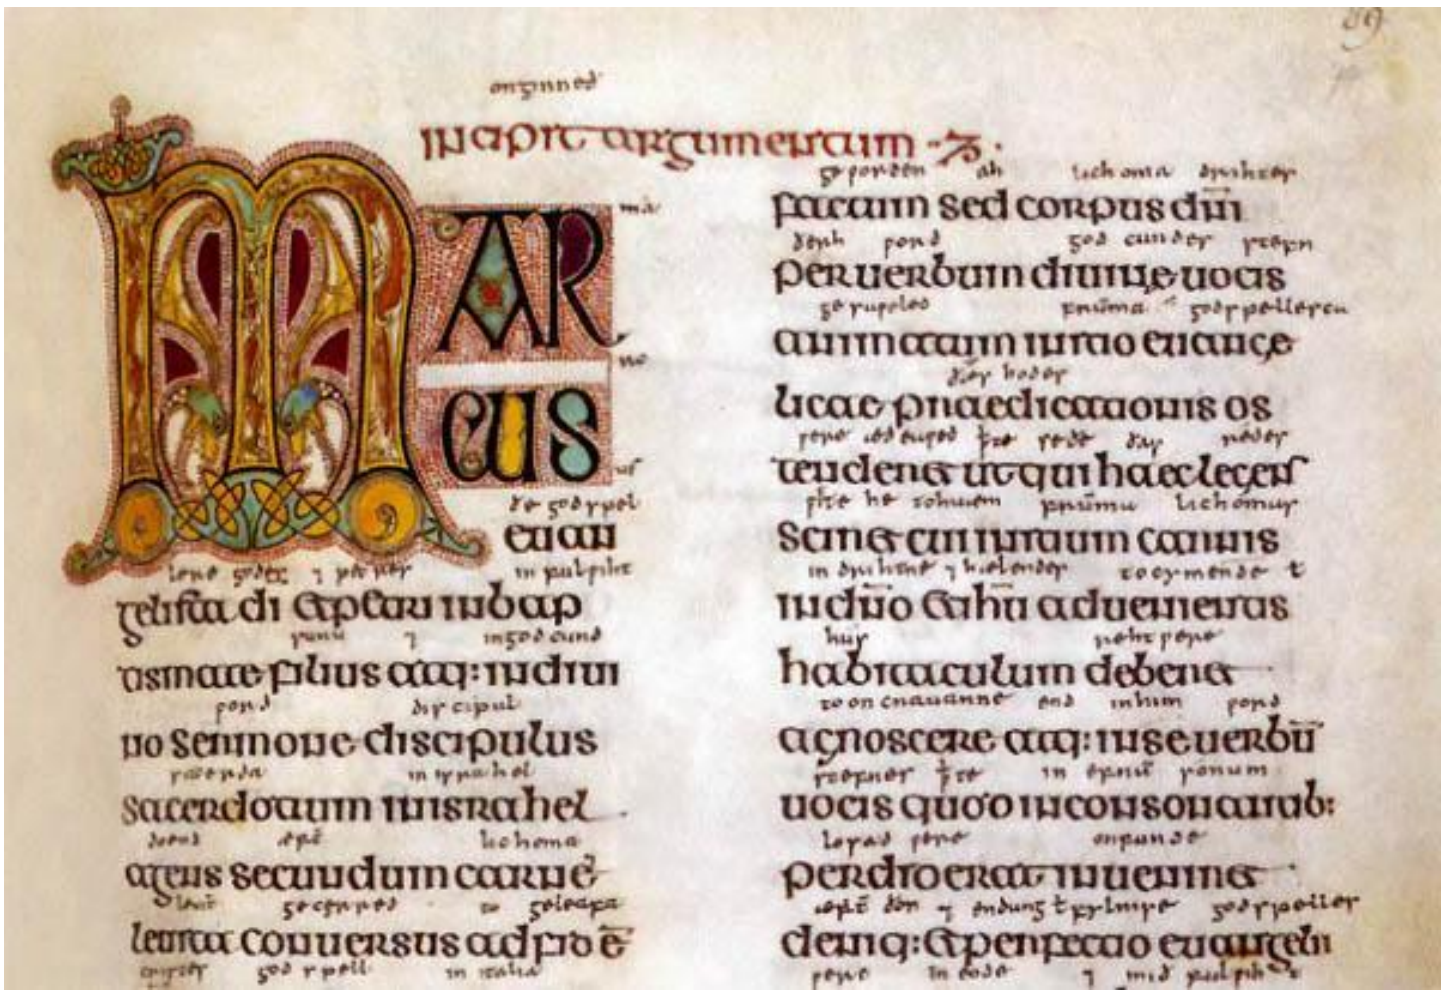 89
onginneð
incipit argumentum
MAR
CUS
de godspel
euan
in fulpiht
gelista di et petri in bap
sunu ⁊ in godcund
tismate filius atq: in diui
word discipul
no sermone discipulus
sacerda in israhel
sacerdotium in israhel
doend lichoma
agens secundum carnē
gecerred to geleafa
leuita conuersus ad fidē
godspell in italia
geworden ah lichoma drihtes
factum sed corpus dn̄i
ðerh word godcundes stefn
per uerbum diuinę uocis
godspelles
animatum initio euange
ðær
licae praedicationis os
tendens ut qui haec legens
lichomes
sciret cui initium carnis
in drihtne ⁊ hælende tocymende
in dn̄o et ihū aduenientis
hus
habitaculum deberet
to oncnauanne in him word
agnoscere atq: in se uerbū
stefnes in sonum
uocis quod in consonantib:
perdiderat inuenire
⁊ endung godspelles
deniq: et perfectio euangelii
⁊ mið